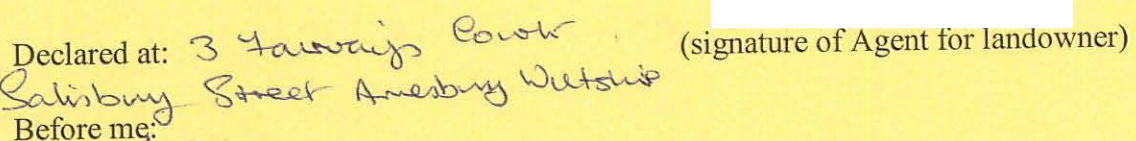 Declared at: 3 Fairways Court (signature of Agent for landowner)
Salisbury Street Amesbury Wiltshire
Before me: